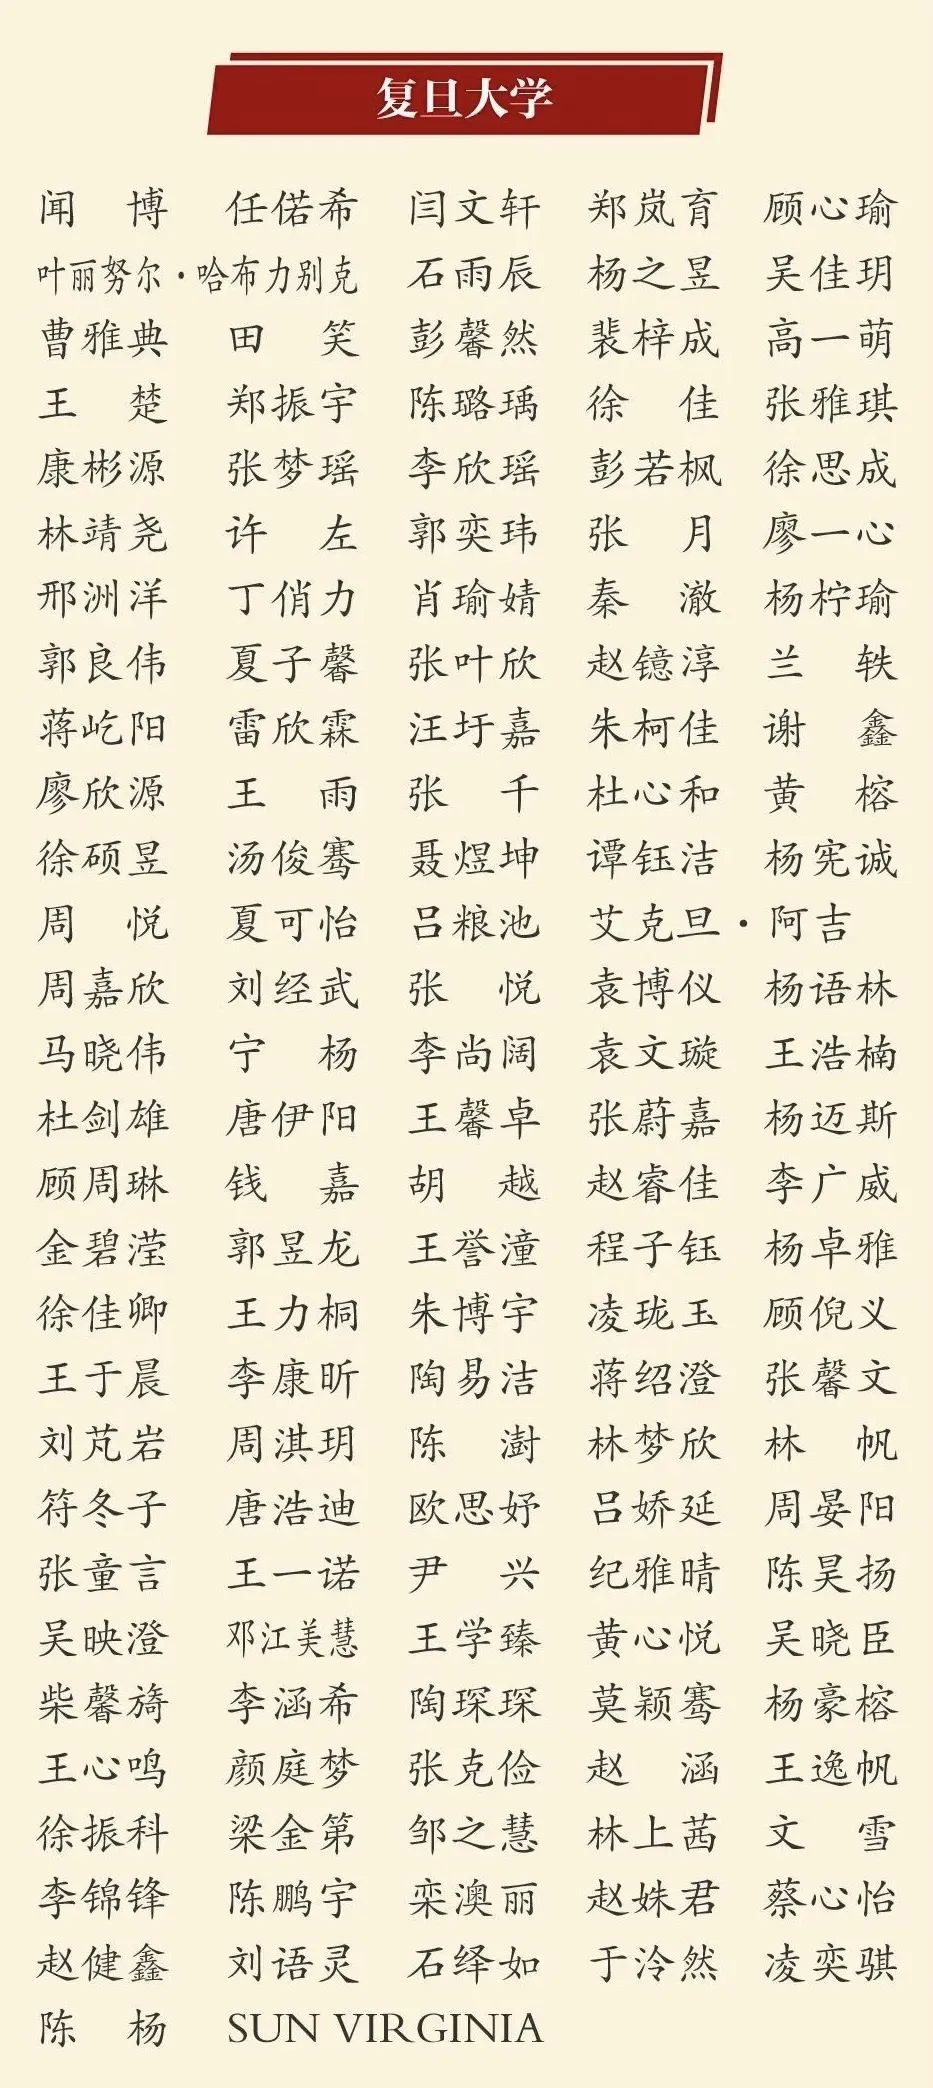 复旦大学
闻博 任偌希 闫文轩 郑岚育 顾心瑜
叶丽努尔·哈布力别克 石雨辰 杨之昱 吴佳玥
曹雅典 田笑 彭馨然 裴梓成 高一萌
王楚 郑振宇 陈璐瑀 徐佳 张雅琪
康彬源 张梦瑶 李欣瑶 彭若枫 徐思成
林靖尧 许左 郭奕玮 张月 廖一心
邢洲洋 丁俏力 肖瑜婧 秦澈 杨柠瑜
郭良伟 夏子馨 张叶欣 赵镱淳 兰轶
蒋屹阳 雷欣霖 汪圩嘉 朱柯佳 谢鑫
廖欣源 王雨 张千 杜心和 黄榕
徐硕昱 汤俊骞 聂煜坤 谭钰洁 杨宪诚
周悦 夏可怡 吕粮池 艾克旦·阿吉
周嘉欣 刘经武 张悦 袁博仪 杨语林
马晓伟 宁杨 李尚阔 袁文璇 王浩楠
杜剑雄 唐伊阳 王馨卓 张蔚嘉 杨迈斯
顾周琳 钱嘉 胡越 赵睿佳 李广威
金碧滢 郭昱龙 王誉潼 程子钰 杨卓雅
徐佳卿 王力桐 朱博宇 凌珑玉 顾倪义
王于晨 李康昕 陶易洁 蒋绍澄 张馨文
刘芃岩 周淇玥 陈澍 林梦欣 林帆
符冬子 唐浩迪 欧思妤 吕娇延 周晏阳
张童言 王一诺 尹兴 纪雅晴 陈昊扬
吴映澄 邓江美慧 王学臻 黄心悦 吴晓臣
柴馨旖 李涵希 陶琛琛 莫颖骞 杨豪榕
王心鸣 颜庭梦 张克俭 赵涵 王逸帆
徐振科 梁金第 邹之慧 林上茜 文雪
李锦锋 陈鹏宇 栾澳丽 赵姝君 蔡心怡
赵健鑫 刘语灵 石绎如 于泠然 凌奕骐
陈杨 SUN VIRGINIA